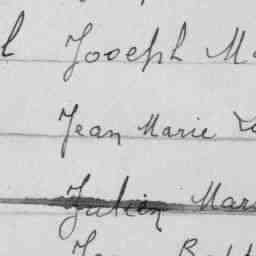 l Joseph M
Jean Marie
Julien Mar